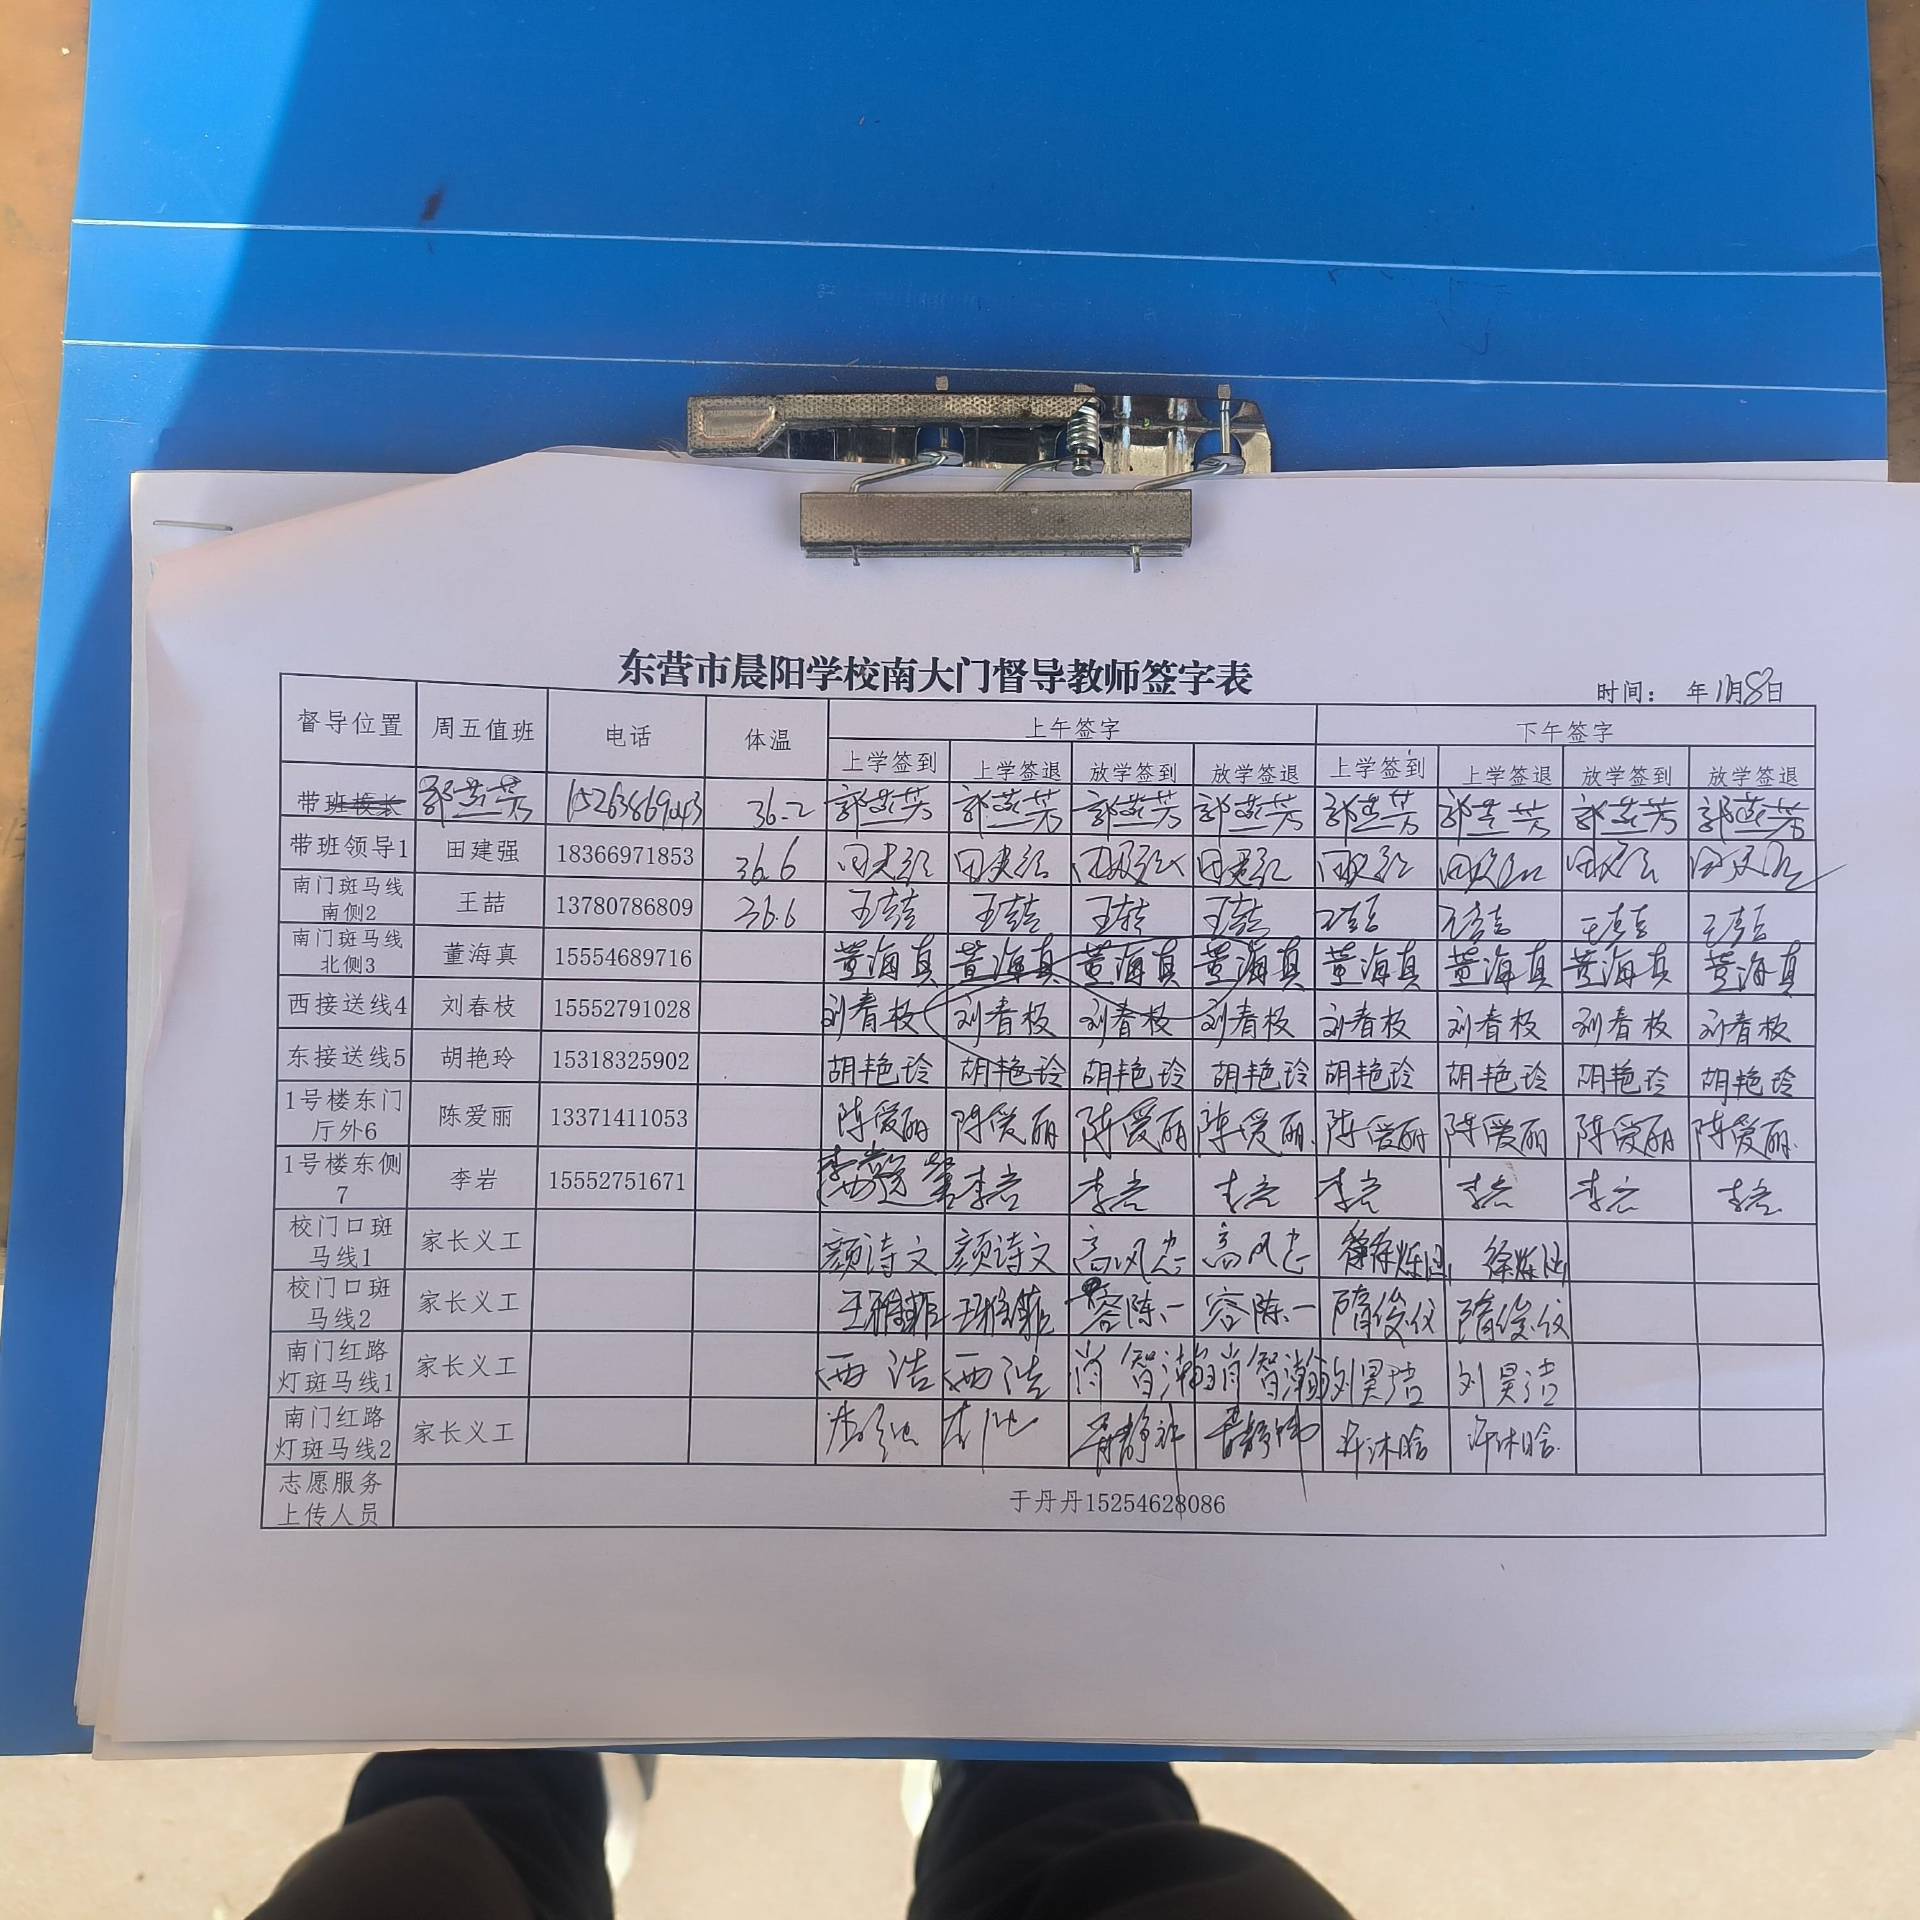 东营市晨阳学校南大门督导教师签字表
时间： 年11月8日
督导位置 周五值班 电话 体温 上午签字 下午签字
上学签到 上学签退 放学签到 放学签退 上学签到 上学签退 放学签到 放学签退
带班校长 郭燕芳 36.2 郭燕芳 郭燕芳 郭燕芳 郭燕芳 郭燕芳 郭燕芳 郭燕芳 郭燕芳
带班领导1 田建强 18366971853 36.6 田建强 田建强 田建强 田建强 田建强 田建强 田建强 田建强
南门斑马线南侧2 王喆 13780786809 36.6 王喆 王喆 王喆 王喆 王喆 王喆 王喆 王喆
南门斑马线北侧3 董海真 15554689716 董海真 董海真 董海真 董海真 董海真 董海真 董海真 董海真
西接送线4 刘春枝 15552791028 刘春枝 刘春枝 刘春枝 刘春枝 刘春枝 刘春枝 刘春枝 刘春枝
东接送线5 胡艳玲 15318325902 胡艳玲 胡艳玲 胡艳玲 胡艳玲 胡艳玲 胡艳玲 胡艳玲 胡艳玲
1号楼东门厅外6 陈爱丽 13371411053 陈爱丽 陈爱丽 陈爱丽 陈爱丽 陈爱丽 陈爱丽 陈爱丽 陈爱丽
1号楼东侧7 李岩 15552751671 李岩 李岩 李岩 李岩 李岩 李岩 李岩
校门口斑马线1 家长义工 颜诗文 颜诗文
校门口斑马线2 家长义工 容陈一 容陈一 隋俊仪 隋俊仪
南门红路灯斑马线1 家长义工 肖智瀚 肖智瀚 刘昊洁 刘昊洁
南门红路灯斑马线2 家长义工 许沐晗 许沐晗
志愿服务上传人员 于丹丹15254628086